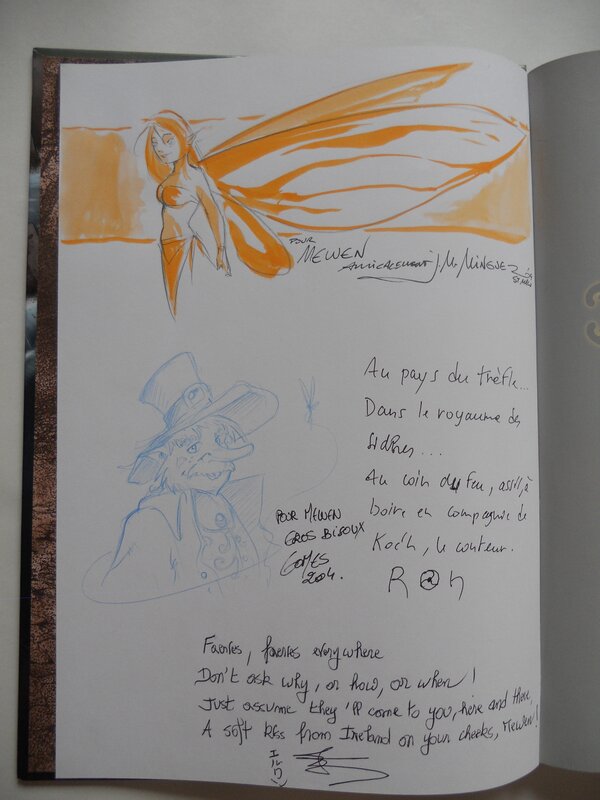 POUR
MEWEN
AMICALEMENT J.M. MINGUEZ
Au pays du trèfle...
Dans le royaume des
sidhes...
Au coin du feu, assis, à
boire en compagnie de
Koc'h, le conteur.
RON
POUR MEWEN
GROS BISOUX
GOMES
2004.
Faeries, faeries everywhere
Don't ask why, or how, or when!
Just assume they'll come to you, here and there,
A soft kiss from Ireland on your cheeks, Mewen!